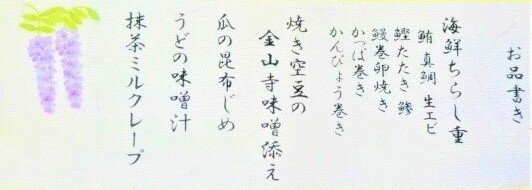 お品書き
海鮮ちらし重
鮪 真鯛 生エビ
鰹たたき 鯵
鰻巻卵焼き
かっぱ巻き
かんぴょう巻き
焼き空豆の
金山寺味噌添え
瓜の昆布じめ
うどの味噌汁
抹茶ミルクレープ